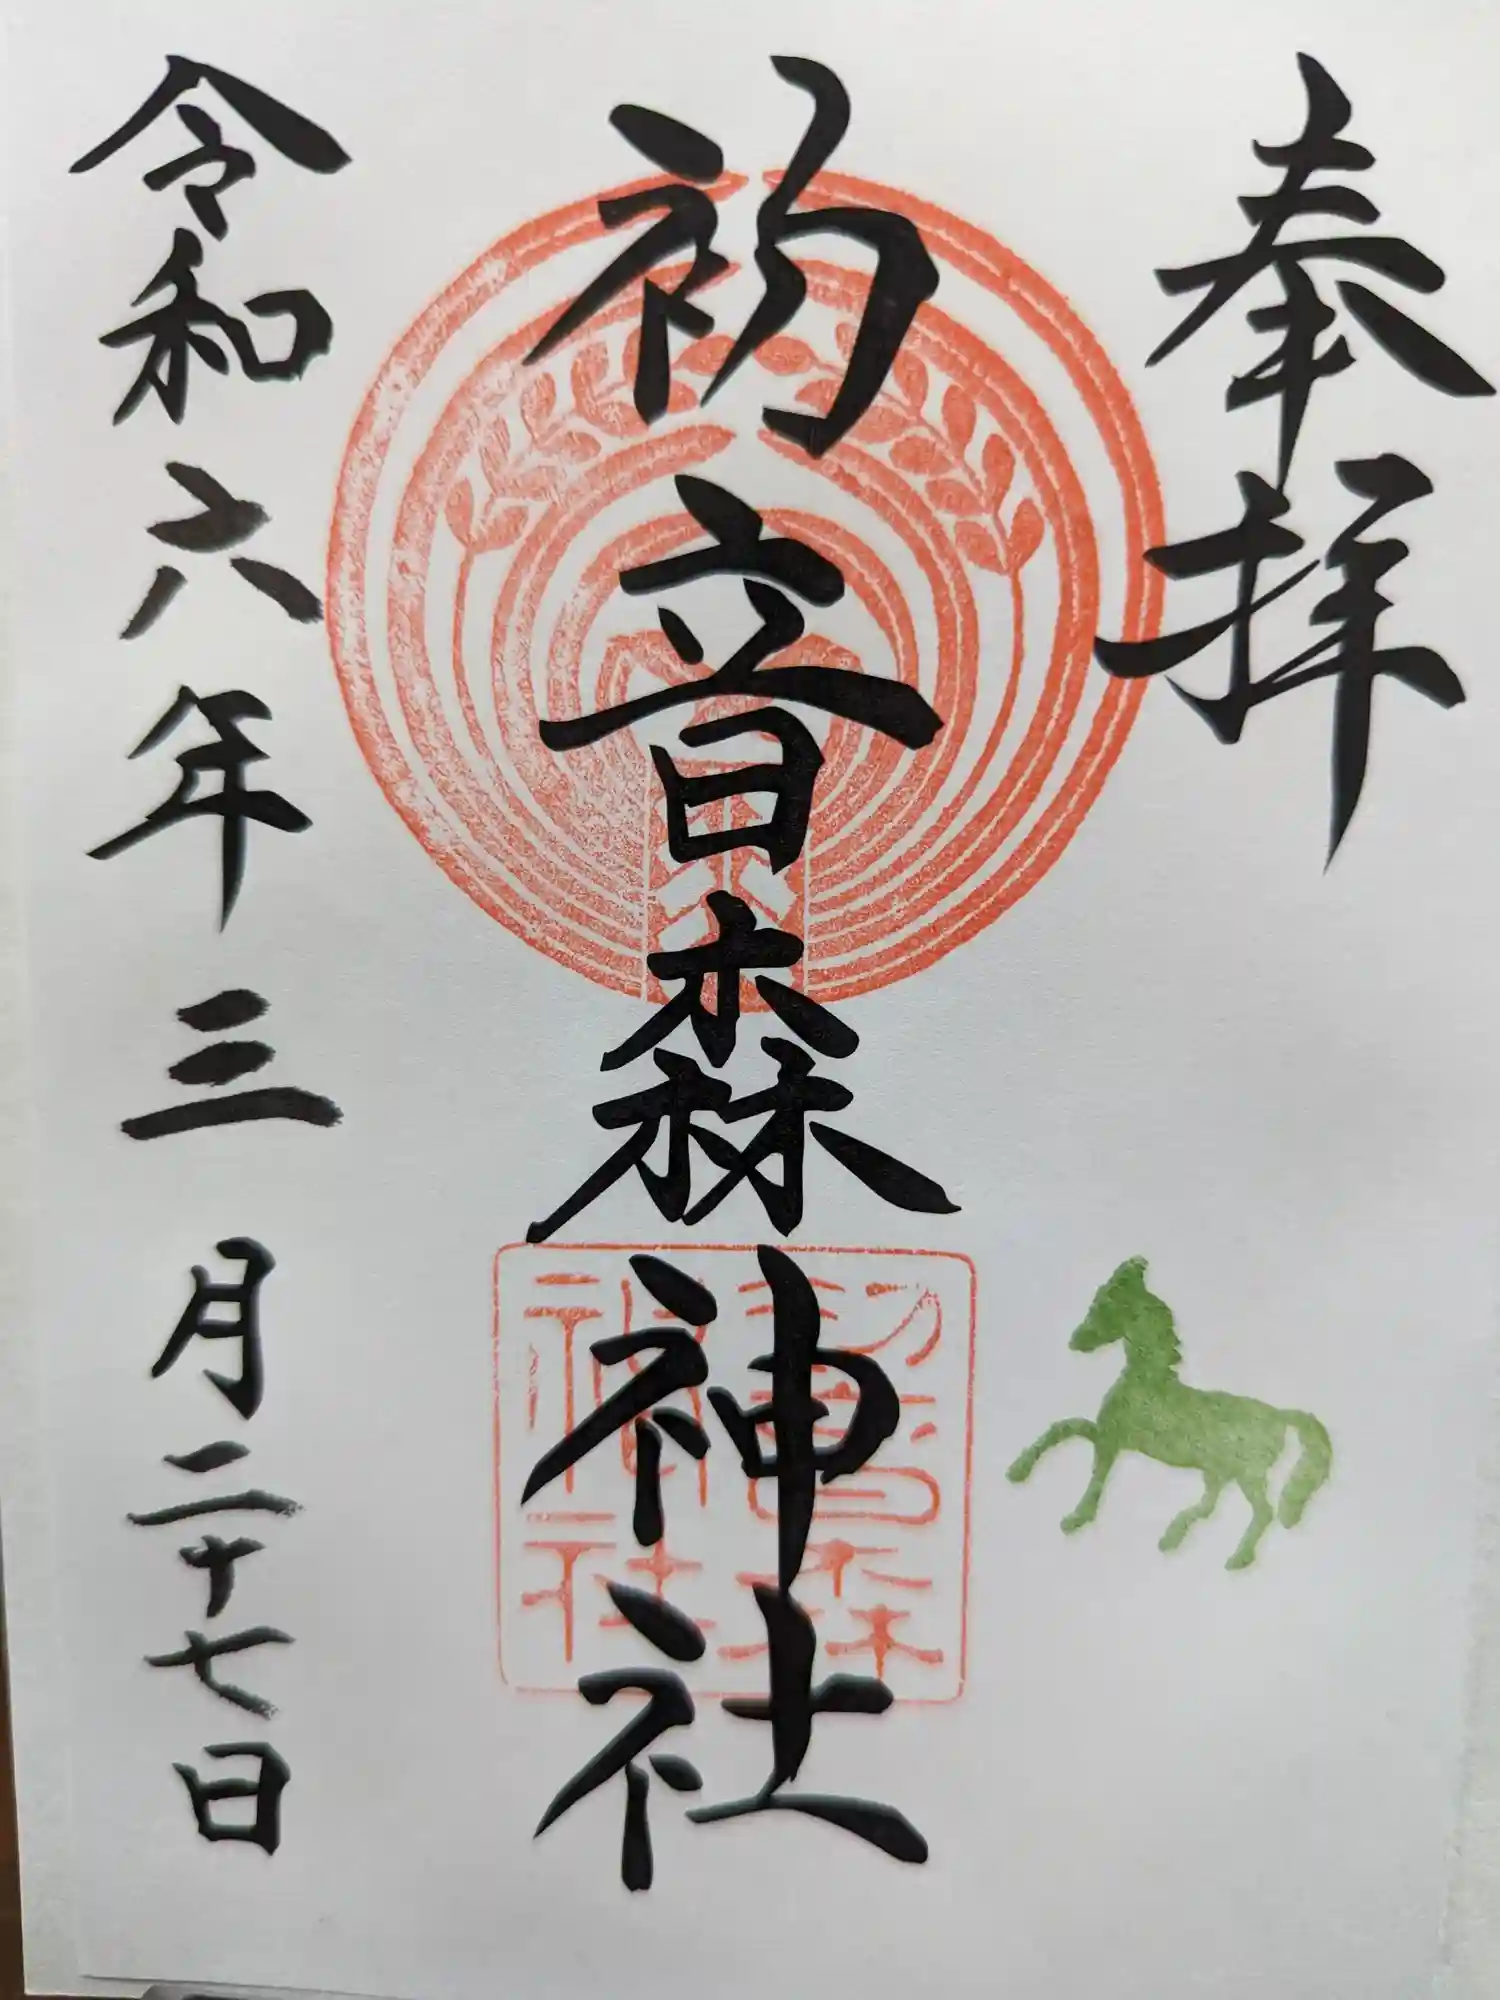 奉拝
初音森神社
初音森
神社
令和六年三月二十七日